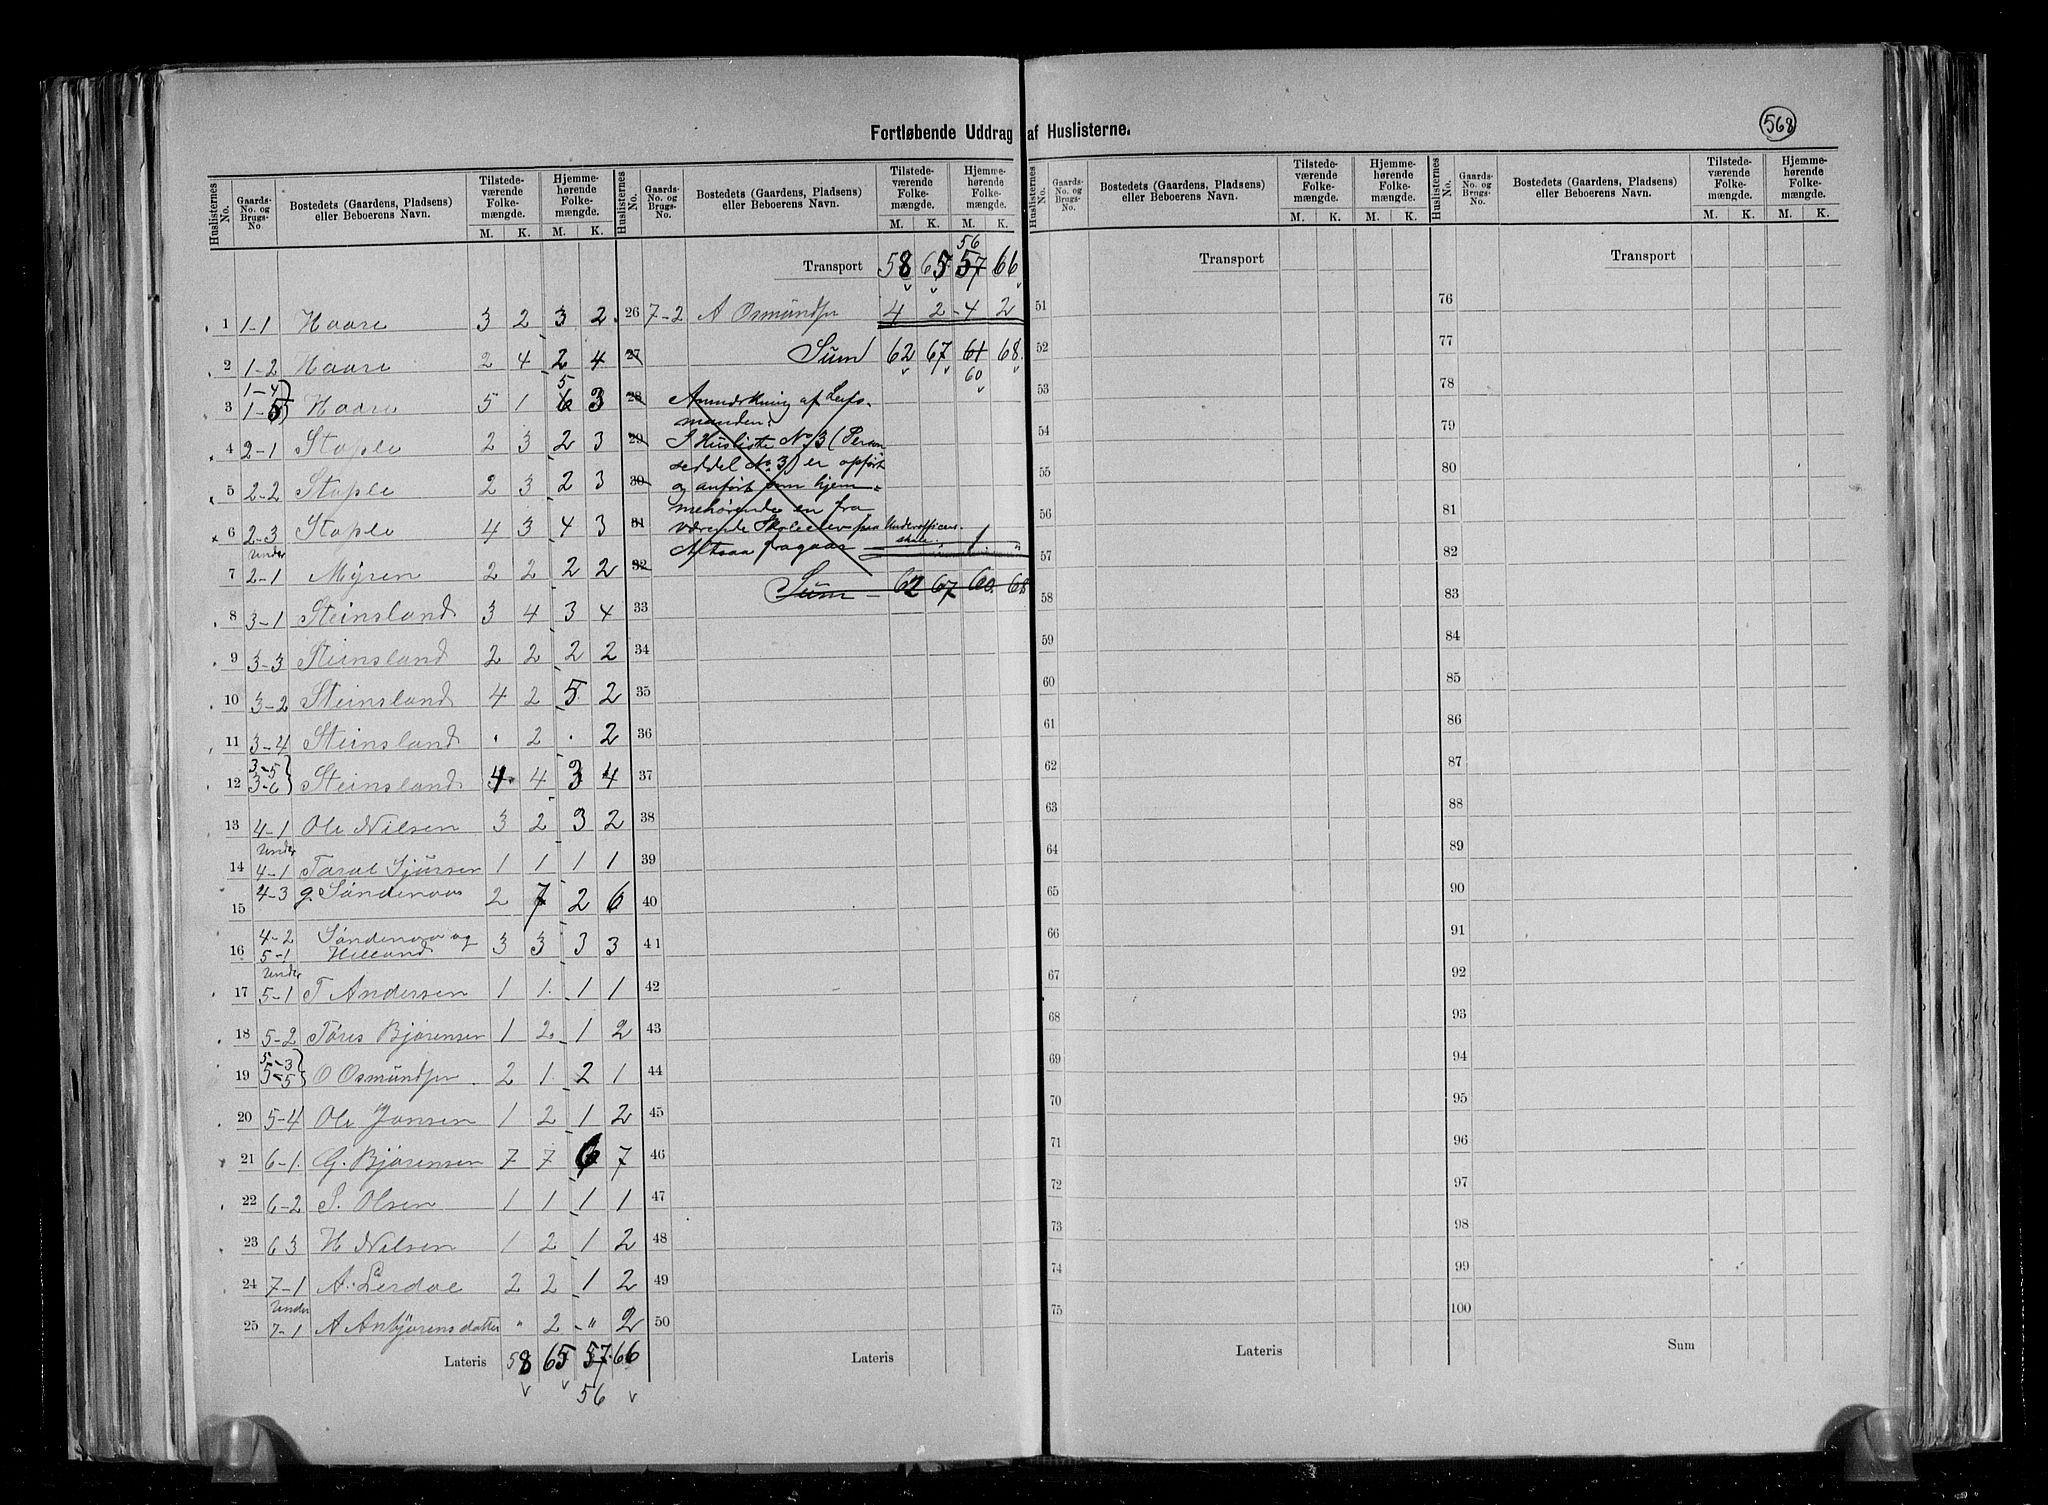 568
Fortløbende Uddrag af Huslisterne.
Huslisternes No. Gaards-No. og Brugs-No. Bostedets (Gaardens, Pladsens) eller Beboerens Navn. Tilstedeværende Folkemængde. M. K. Hjemmehørende Folkemængde. M. K.
1 1-1 Haare 3 2 3 2
2 1-2 Haare 2 4 2 4
3 1-4 1-5 Haare 5 1 6 5 3
4 2-1 Stople 2 3 2 3
5 2-2 Stople 2 3 2 3
6 2-3 Stople 4 3 4 3
7 under 2-1 Myren 2 2 2 2
8 3-1 Steinsland 3 4 3 4
9 3-3 Steinsland 2 2 2 2
10 3-2 Steinsland 4 2 5 2
11 3-4 Steinsland . 2 . 2
12 3-5 3-6 Steinsland 4 4 3 4
13 4-1 Ole Nilsen 3 2 3 2
14 under 4-1 Taral Sjursen 1 1 1 1
15 4-3 g. Søndenaa 2 7 2 6
16 4-2 5-1 Søndenaa og Helland 3 3 3 3
17 under 5-1 T Andersen 1 1 1 1
18 5-2 Tøres Bjørensen 1 2 1 2
19 5-3 5-5 O Osmundsen 2 1 2 1
20 5-4 Ole Jansen 1 2 1 2
21 6-1 G. Bjørensen 7 7 6 7
22 6-2 S. Olsen 1 1 1 1
23 6 3 H Nilsen 1 2 1 2
24 7-1 A. Lerdal 2 2 1 2
25 under 7-1 A Anbjørensdatter " 2 " 2
Lateris 58 65 57 66
56
Huslisternes No. Gaards-No. og Brugs-No. Bostedets (Gaardens, Pladsens) eller Beboerens Navn. Tilstedeværende Folkemængde. M. K. Hjemmehørende Folkemængde. M. K.
56
Transport 58 65 57 66
26 7-2 A Osmundsen 4 2 4 2
27 Sum 62 67 61 68
60
28 Anmærkning af Lensmanden:
29 I Husliste No 3 (Personseddel No 3) er opført
30 og anført som hjemmehørende en fra
31 værende Skoleelev paa Underofficersskole. 1 "
32 Altsaa fragaar
Sum 62 67 60 68
33
34
35
36
37
38
39
40
41
42
43
44
45
46
47
48
49
50
Lateris
Huslisternes No. Gaards-No. og Brugs-No. Bostedets (Gaardens, Pladsens) eller Beboerens Navn. Tilstedeværende Folkemængde. M. K. Hjemmehørende Folkemængde. M. K.
Transport
51
52
53
54
55
56
57
58
59
60
61
62
63
64
65
66
67
68
69
70
71
72
73
74
75
Lateris
Huslisternes No. Gaards-No. og Brugs-No. Bostedets (Gaardens, Pladsens) eller Beboerens Navn. Tilstedeværende Folkemængde. M. K. Hjemmehørende Folkemængde. M. K.
Transport
76
77
78
79
80
81
82
83
84
85
86
87
88
89
90
91
92
93
94
95
96
97
98
99
100
Sum